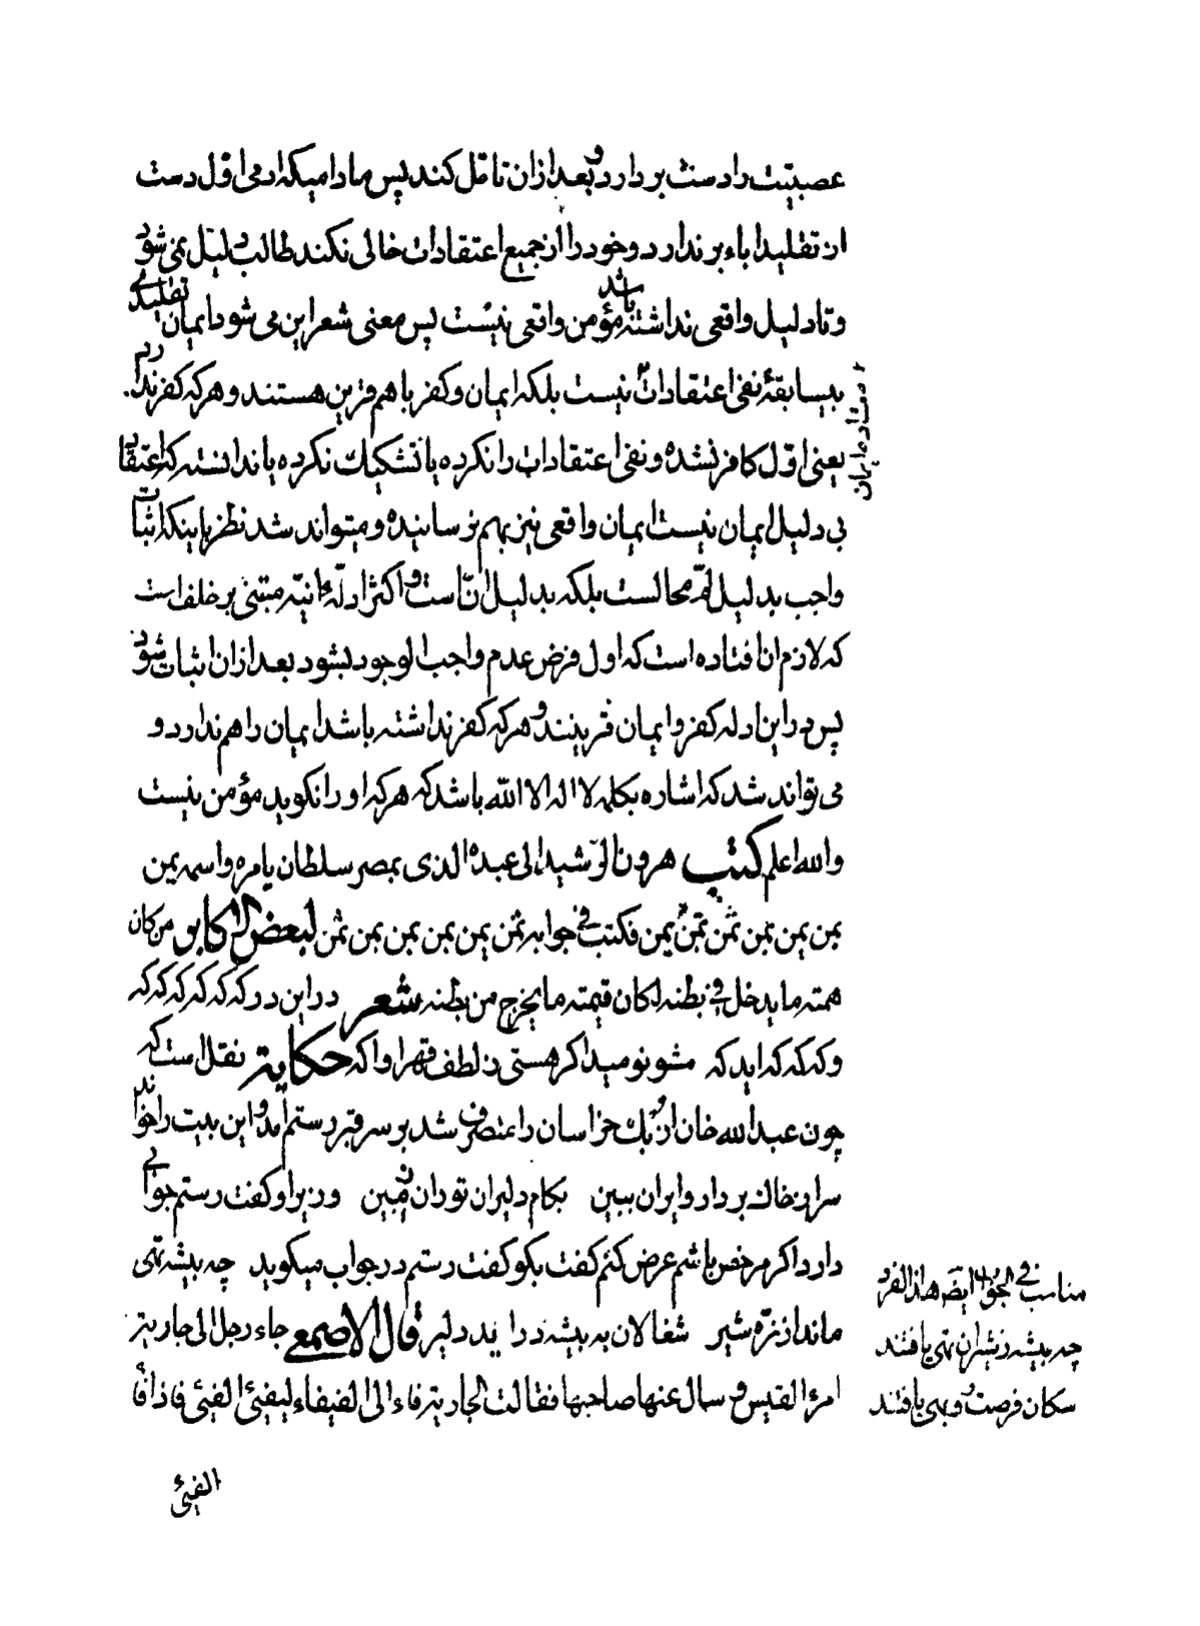 عصبیّت را دست بردارد و بعد از ان تامّل کند پس مادامیکه ادمی اوّل دست
از تقلید اباء بر ندارد و خود را از جمیع اعتقادات خالی نکند طالب دلیل نمی شود
و تا دلیل واقعی نداشته باشد مؤمن واقعی نیست پس معنی شعر این می شود ایمان تقلیدی
بیسابقهٔ نفی اعتقادات نیست بلکه ایمان و کفر باهم قرین هستند و هر که کفر ندارد
یعنی اوّل کافر نشده و نفی اعتقادات را نکرده یا تشکیک نکرده یا ندانسته که اعتقاد
بی دلیل ایمان نیست ایمان واقعی نیز بهم نرسانیده و میتواند شد نظر باینکه اثبات
واجب بدلیل لمّ محالست بلکه بدلیل انّ است و اکثر ادلّهٔ انیّه مبتنی بر خلف است
که لازم ان افتاده است که اول فرض عدم واجب الوجود بشود بعد از ان اثبات شود
پس در این ادله کفر و ایمان قرینند و هر که کفر نداشته باشد ایمان را هم ندارد و
می تواند شد که اشاره بکلمه لا اله الا الله باشد که هر که او را نکوید مؤمن نیست
والله اعلم کتب هرون الرّشید الی عبده الذی بمصر سلطان یامره واسمه یمن
یمن یمن یمن ثمن ثمن یمن فکتب فی جوابه ثمن یمن یمن یمن یمن ثمن لبعض الاکابر من کان
همته ما یدخل فی بطنه لکان قیمته ما یخرج من بطنه شعر در این در که که که که که که
و که که که اید که مشو نومید اکر هستی ز لطف قهر او اکه حکایة نقل است که
چون عبد الله خان ازبک خراسان را متصرف شد بر سر قبر رستم امد و این بیت را خواند
سر از خاک بردار و ایران ببین بکام دلیران توران زمین وزیر او کفت رستم جوابی
دارد اکر مرخص باشم عرض کنم کفت بکو کفت رستم در جواب میکوید چه بیشه تهی
ماند از نرّه شیر شغالان به بیشه در اید دلیر قال الاصمعی جاء رجل الی جاریة
امرء القیس و سال عنها صاحبها فقالت الجاریة فاء الی الفیفاء لیفیئ الفیئ فاذا فاء
الفیئ
مناسب فی الجواب ایضا هذا الفرد
چه بیشه ز شیران تهی یافتند
سکان فرصت و بهی یافتند